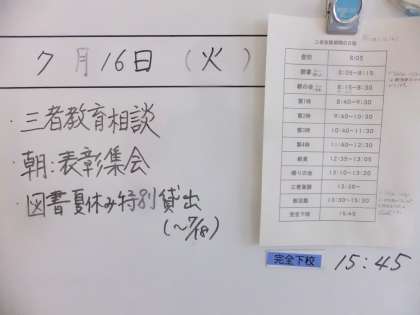 7月16日（火）
・三者教育相談
・朝:表彰集会
・図書夏休み特別貸出
（～7/18）
三者相談期間の日程
登校 8:05
朝の会 8:15-8:30
第1時 8:40-9:30
第2時 9:40-10:30
第3時 10:40-11:30
第4時 11:40-12:30
給食 12:35-13:05
帰りの会 13:10-13:20
三者面談
部活動 13:30-15:30
完全下校 15:45
完全下校 15:45